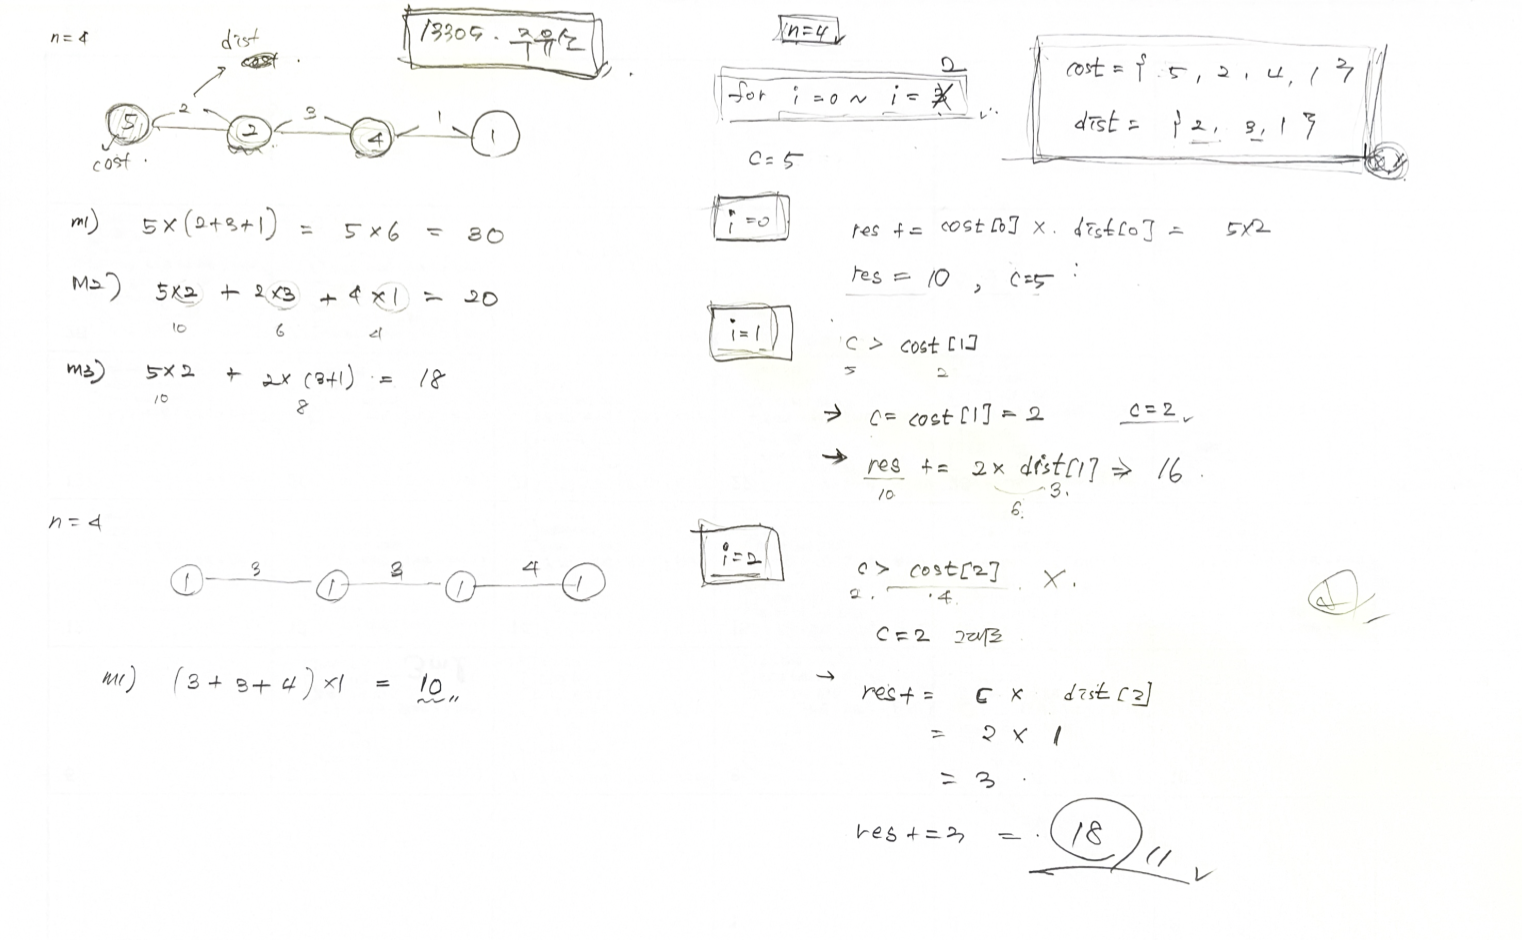 n=4
dist
cost
13305. 주유소
5 2 2 3 4 1 1
cost.
m1) 5×(2+3+1) = 5×6 = 30
m2) 5×2 + 2×3 + 4×1 = 20
10 6 4
m3) 5×2 + 2×(3+1) = 18
10 8
n=4
1 3 1 3 1 4 1
m1) (3+3+4)×1 = 10
n=4
2
for i=0 ~ i=
cost = { 5, 2, 4, 1 }
dist = { 2, 3, 1 }
C=5
i=0
res += cost[0] × dist[0] = 5×2
res = 10, C=5
i=1
C > cost[1]
5 2
→ C = cost[1] = 2 C=2
→ res += 2× dist[1] ⇒ 16
10 3.
6.
i=2
C > cost[2] X.
2. 4.
C=2
→ res += C × dist[2]
= 2 × 1
= 3
res += 3 = 18